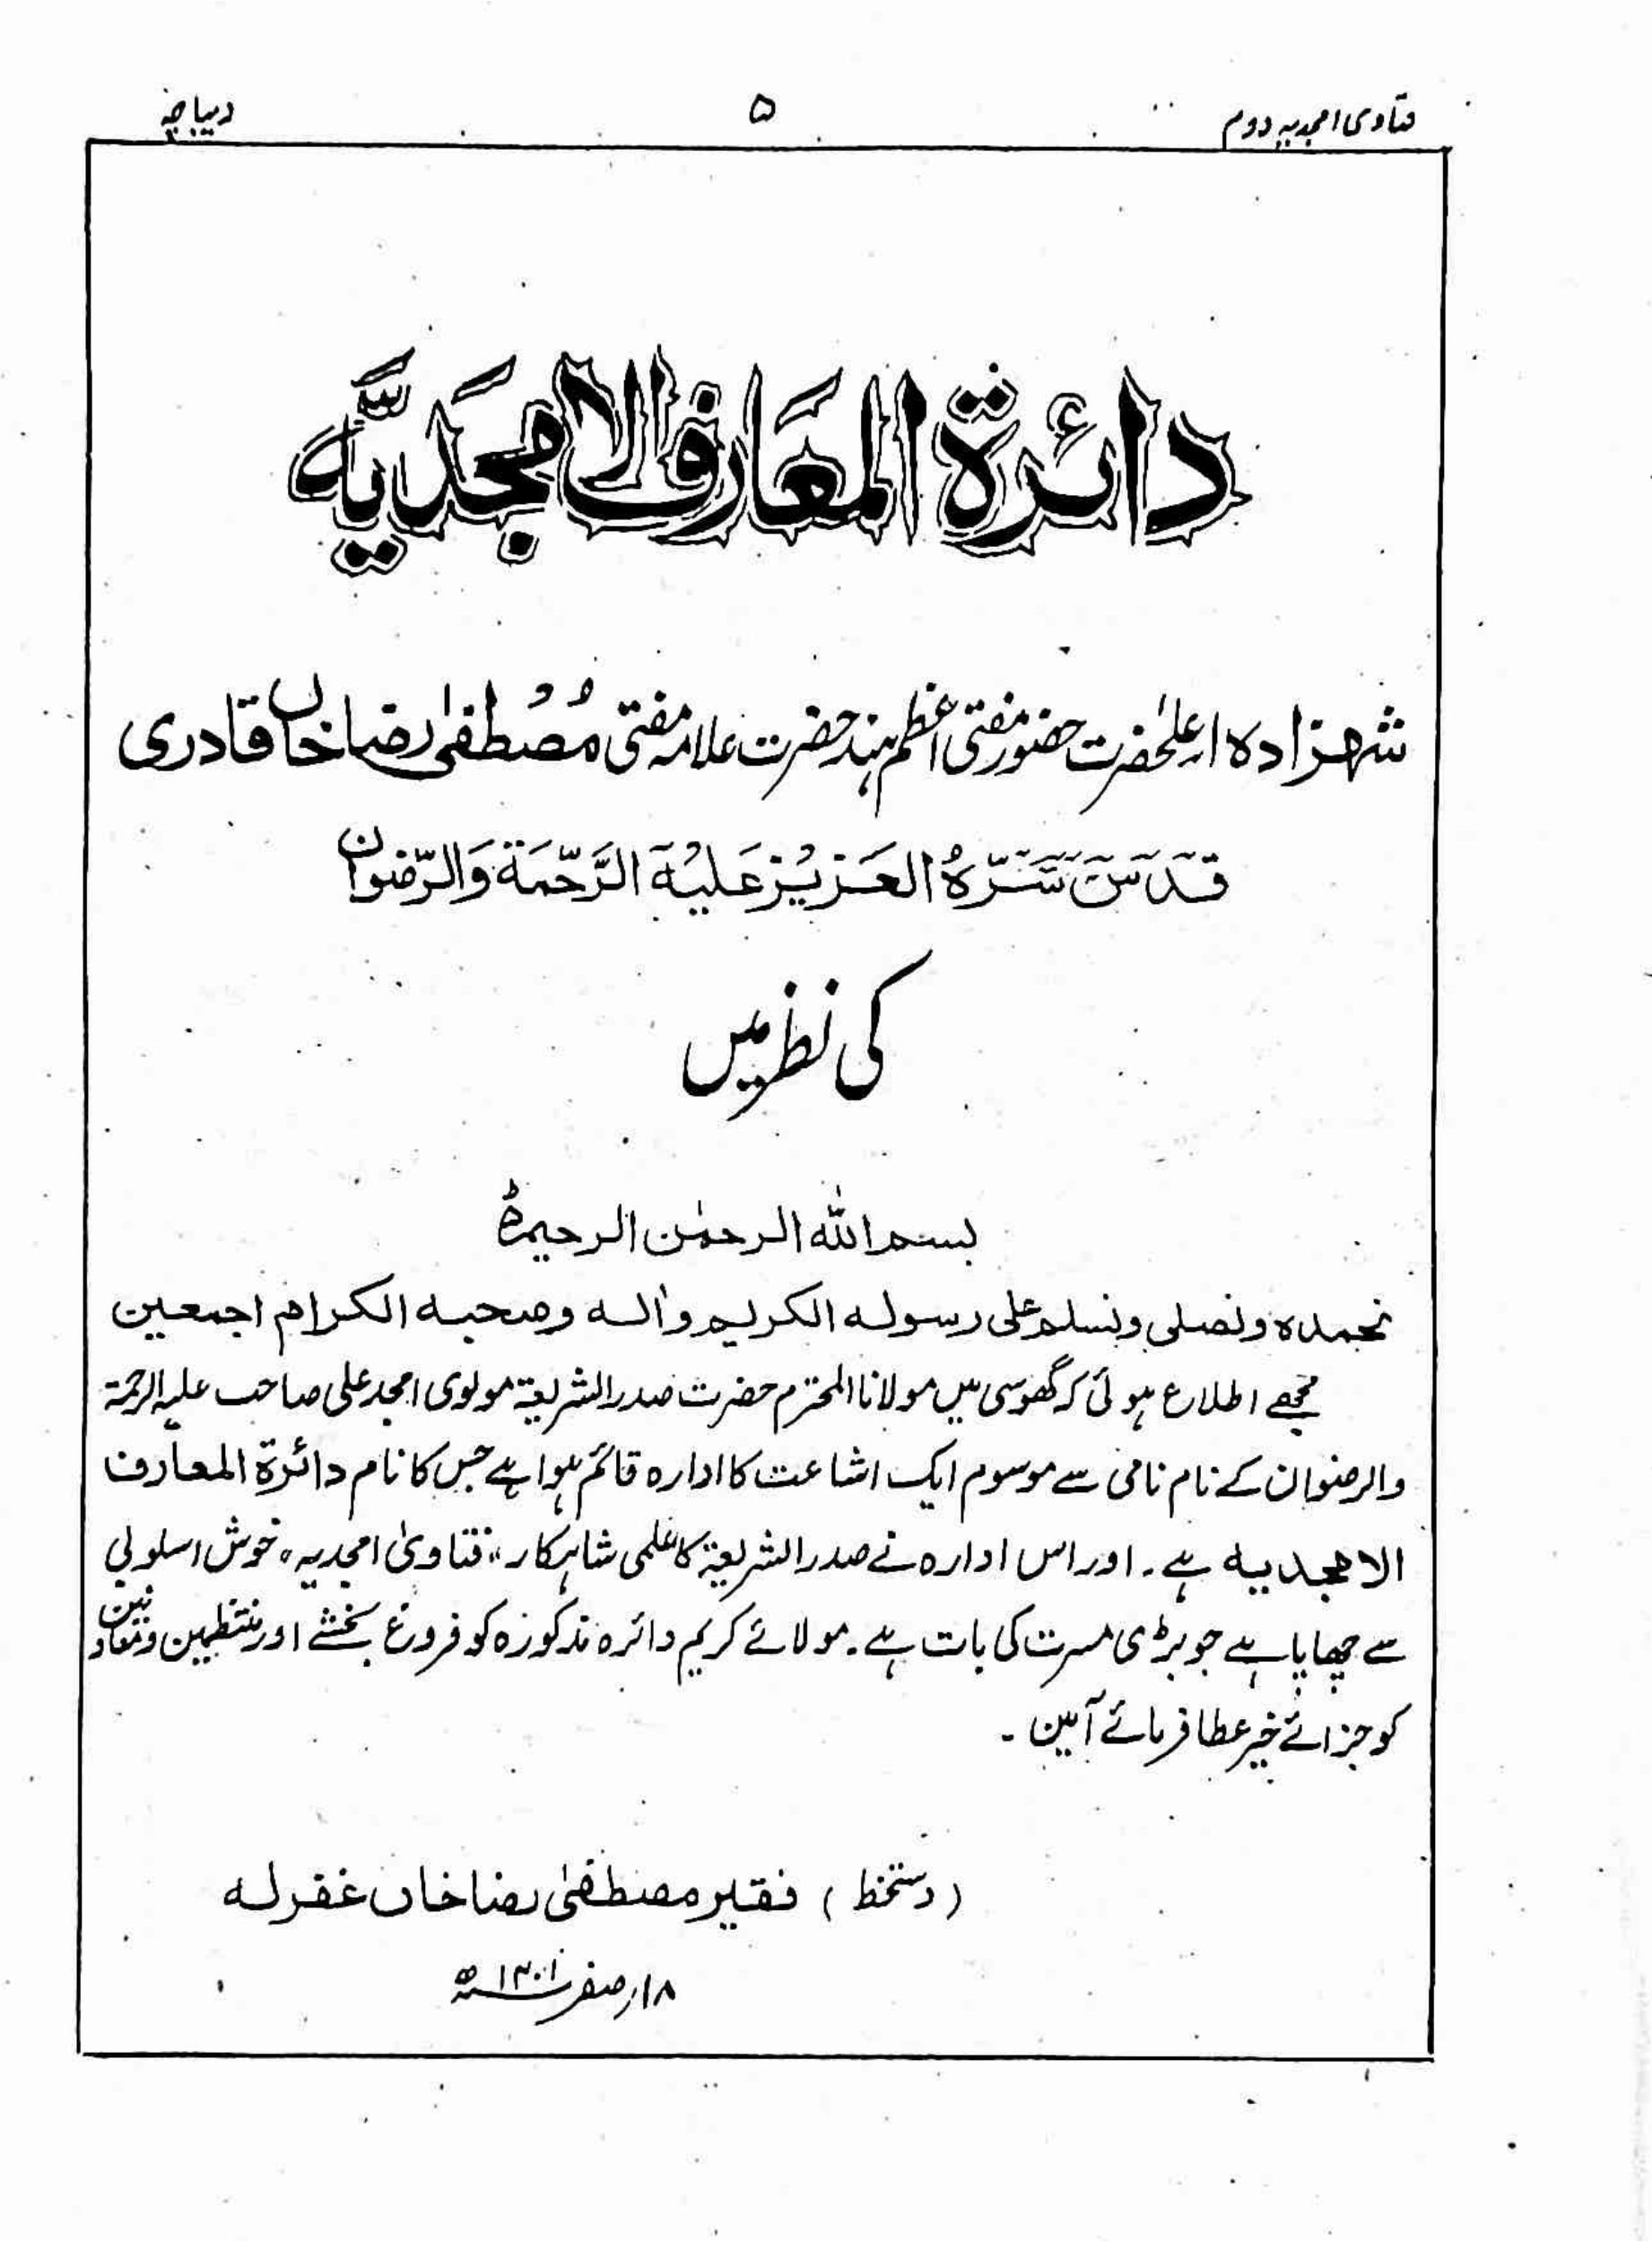 فتاوی امجدیہ دوم ۵ دیباچہ
دائرۃ المعارف الامجدیہ
شہزادہ اعلٰحضرت حضور مفتی اعظم ہند حضرت علامہ مفتی مُصْطفیٰ رضا خاں قادری
قدس سرہُ العزیز عَلیہ الرَّحمۃ وَالرّضوان
کی نظر میں
بسم اللہ الرحمٰن الرحیمؕ
نحمدہ ونصلی ونسلم علی رسولہ الکریم واٰلہ وصحبہ الکرام اجمعین
مجھے اطلاع ہوئی کہ گھوسی میں مولانا المحترم حضرت صدر الشریعۃ مولوی امجد علی صاحب علیہ الرحمۃ
والرضوان کے نام نامی سے موسوم ایک اشاعت کا ادارہ قائم ہوا ہے جس کا نام دائرۃ المعارف
الامجدیہ ہے۔ اور اس ادارہ نے صدر الشریعۃ کا علمی شاہکار "فتاویٰ امجدیہ" خوش اسلوبی
سے چھاپا ہے جو بڑی مسرت کی بات ہے۔ مولائے کریم دائرہ مذکورہ کو فروغ بخشے اور منتظمین ومعاونین
کو جزائے خیر عطا فرمائے آمین۔
(دستخط) فقیر مصطفیٰ رضا خاں غفرلہ
۱۸ر صفر ۱۴۰۱ھ